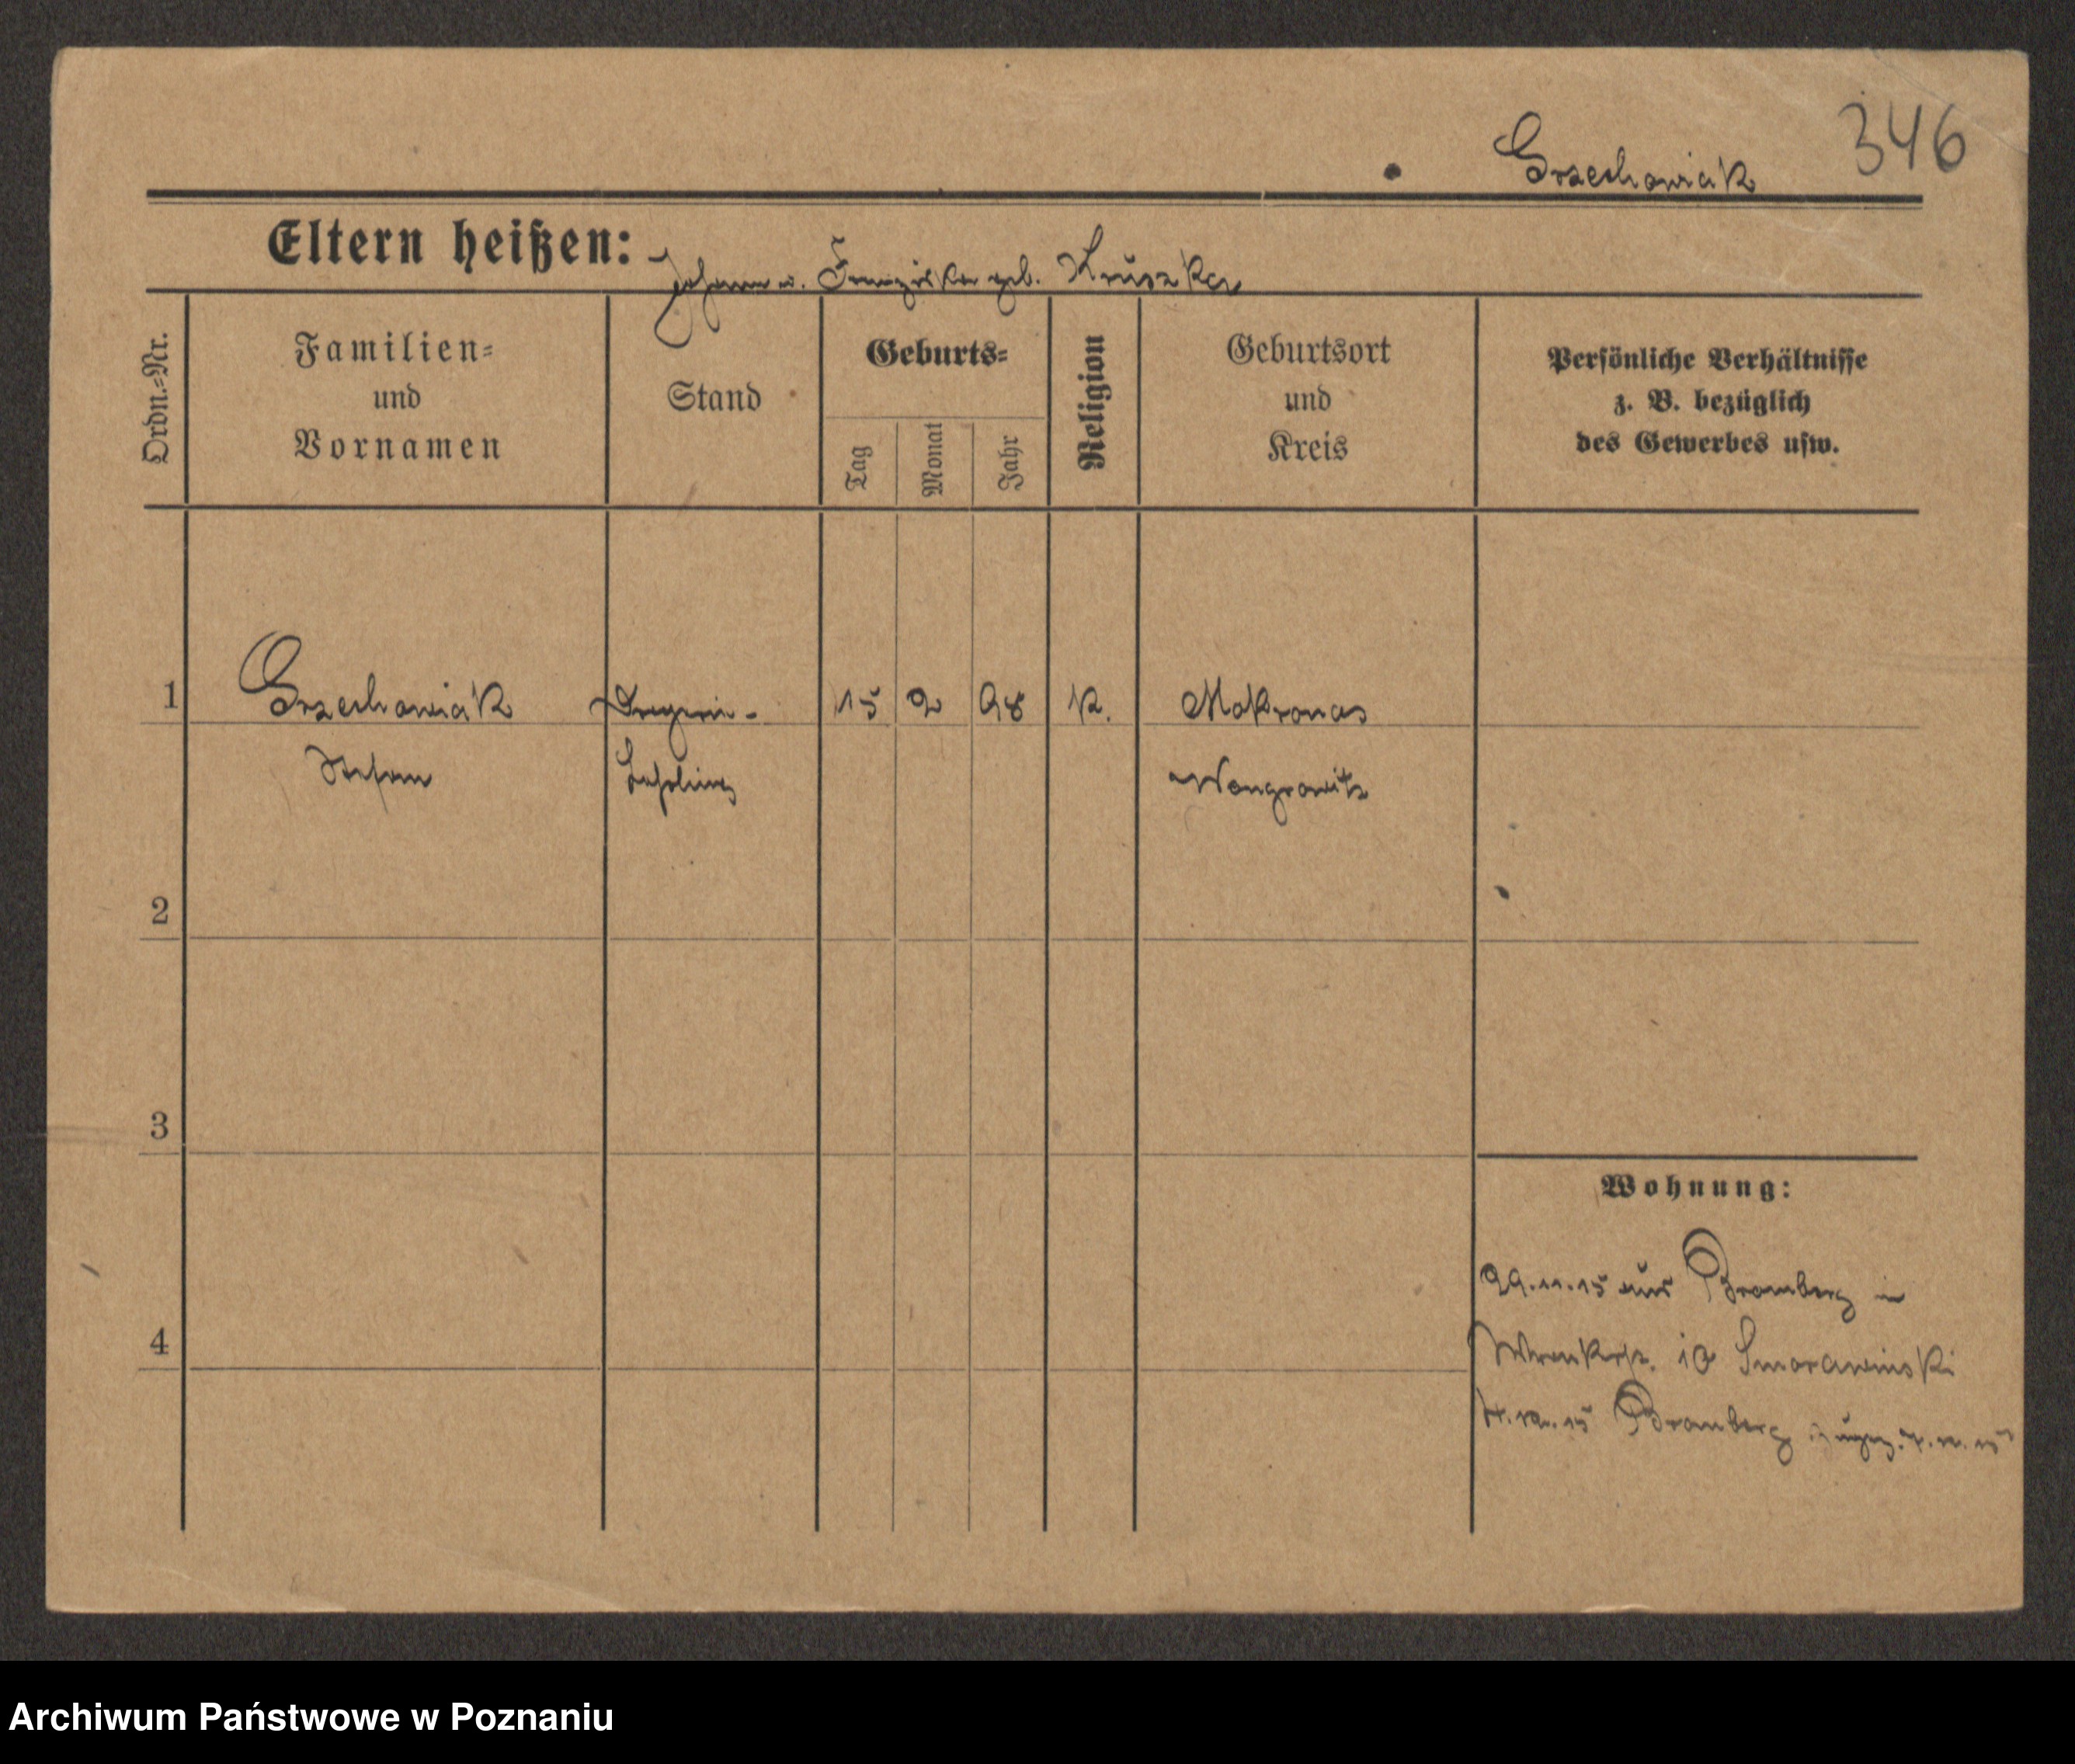 346
Grzechowiak
Eltern heißen: Johann u. Franziska geb. Kruszka
Ordn.-Nr.
Familien-
und
Vornamen
Stand
Geburts-
Tag
Monat
Jahr
Religion
Geburtsort
und
Kreis
Persönliche Verhältnisse
z. B. bezüglich
des Gewerbes usw.
1 Grzechowiak 15 2 98 K. Mokronos
Stefan Lehrling Wongrowitz
2
3
4
Wohnung:
29.11.15 aus Bromberg in
10 Smorawinski
Bromberg
Archiwum Państwowe w Poznaniu